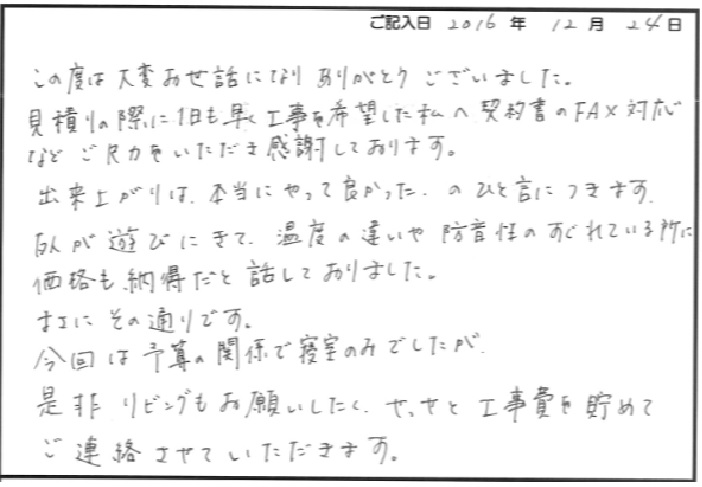 ご記入日 2016 年 12 月 24 日
この度は大変お世話になりありがとうございました。
見積りの際に1日も早く工事を希望した私へ契約書のFAX対応
などご尽力をいただき感謝しております。
出来上がりは、本当にやって良かった、のひと言につきます。
友人が遊びにきて、温度の違いや防音性のすぐれている所に
価格も納得だと話しておりました。
まさにその通りです。
今回は予算の関係で寝室のみでしたが、
是非リビングもお願いしたく、せっせと工事費を貯めて
ご連絡させていただきます。